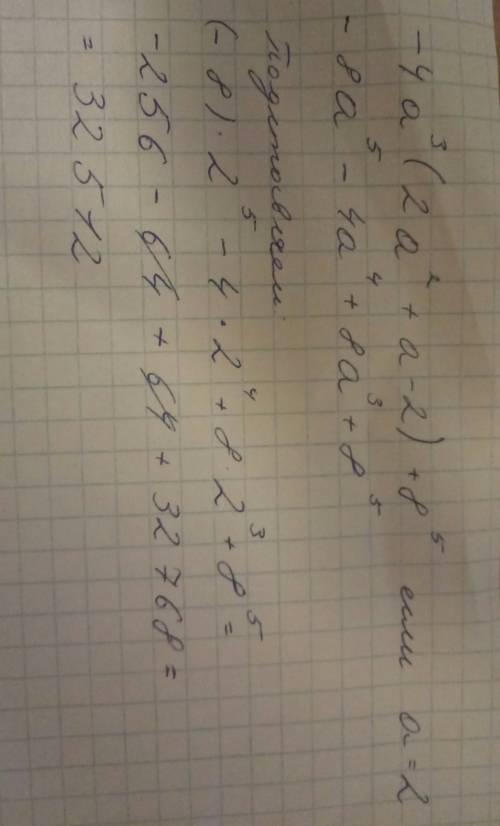 -4a³(2a²+a-2)+8⁵ если a=2
-8a⁵-4a⁴+8a³+8⁵
Подставляем:
(-8)·2⁵-4·2⁴+8·2³+8⁵=
-256-64+64+32768=
=32512